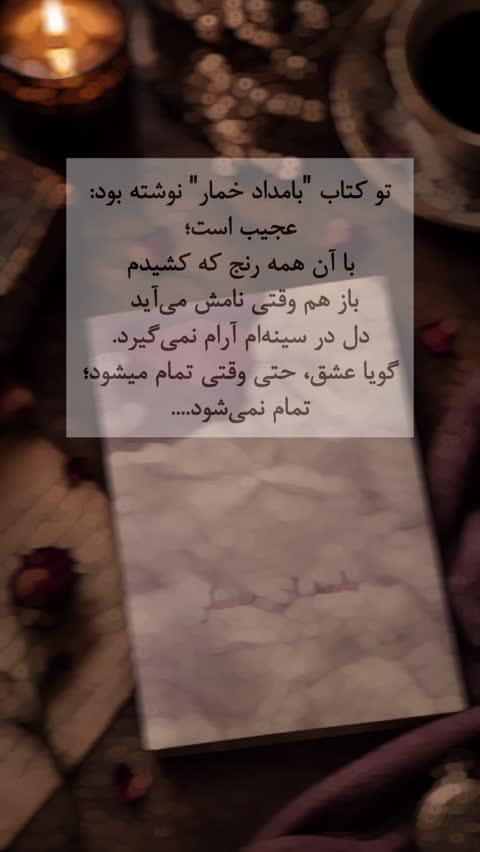 تو کتاب "بامداد خمار" نوشته بود:
عجیب است؛
با آن همه رنج که کشیدم
باز هم وقتی نامش می‌آید
دل در سینه‌ام آرام نمی‌گیرد.
گویا عشق، حتی وقتی تمام میشود؛
تمام نمی‌شود....